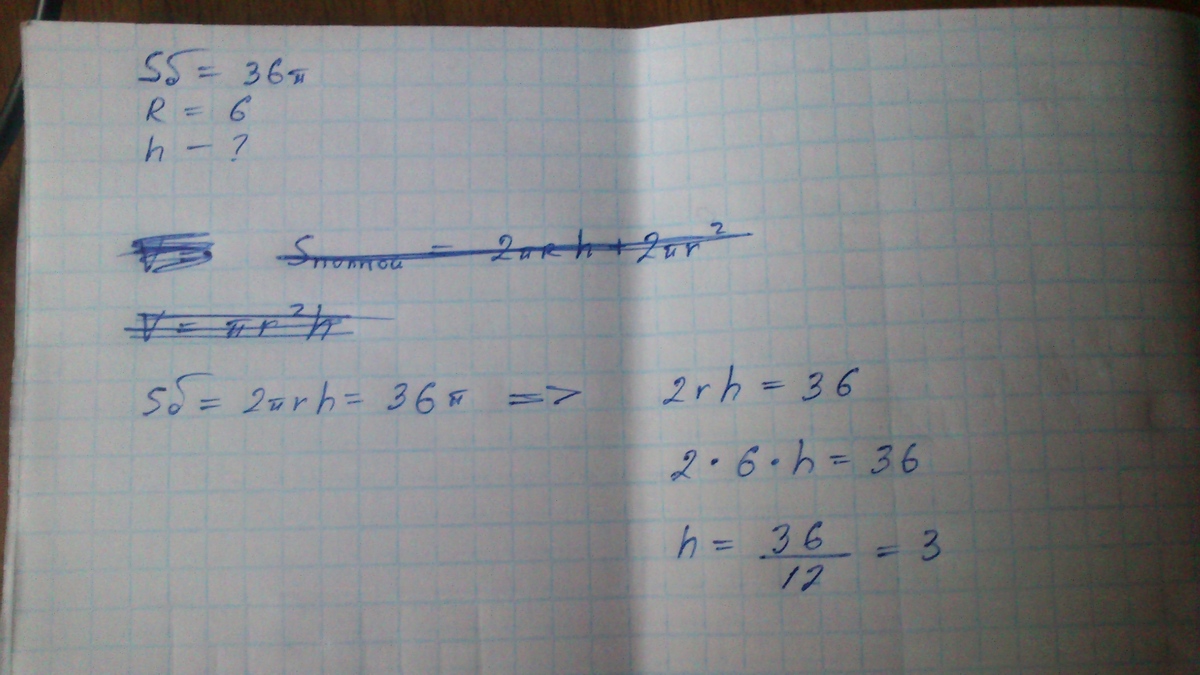 Sб = 36π
R = 6
h - ?
V =
Sполной = 2πRh + 2πr²
V = πr²h
Sб = 2πrh = 36π =>
2rh = 36
2 · 6 · h = 36
h = 36/12 = 3